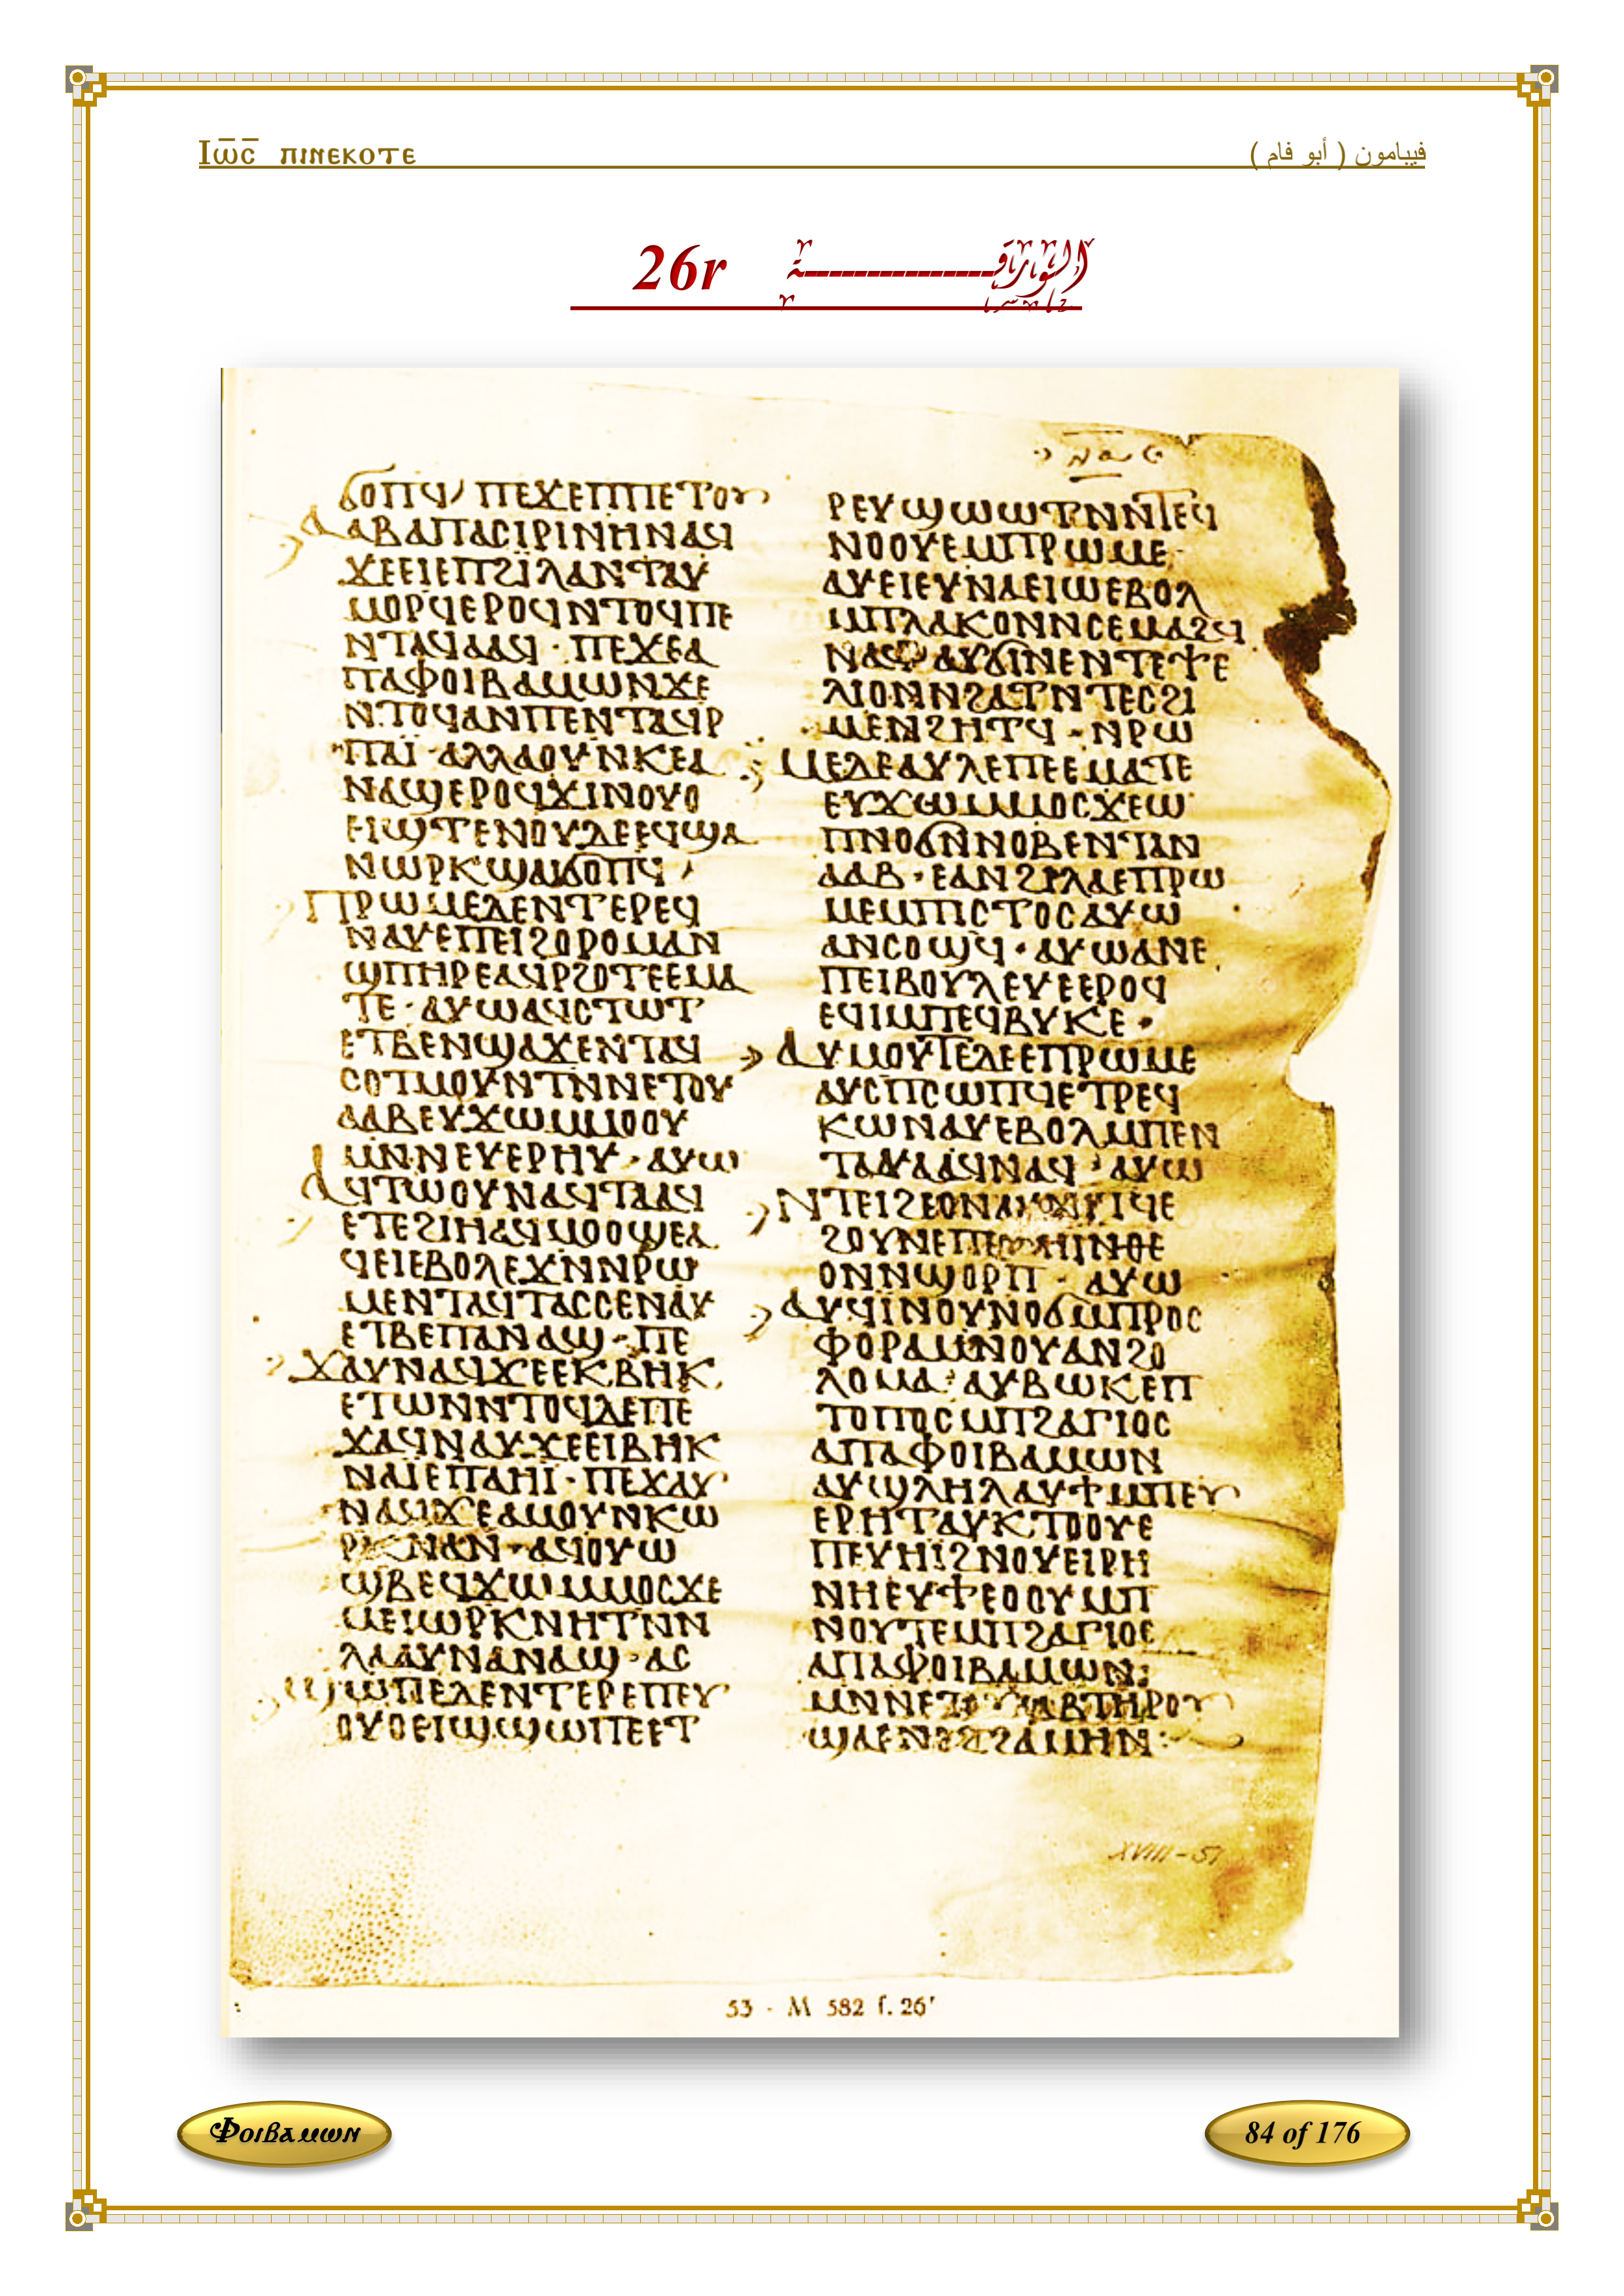 Ⲓⲱ̅ⲥ̅ ⲡⲓⲛⲉⲕⲟⲧⲉ
فيبامون ( أبو فام )
26r الورقة
ϭⲟⲡϥ ⲡⲉϫⲉⲡⲡⲉⲧⲟⲩ
ⲁⲁⲃⲁⲡⲁⲥⲓⲣⲓⲛⲏⲛⲁϥ
ϫⲉⲉⲓⲉⲡϩⲓⲗⲁⲛⲧⲁⲩ
ⲙⲟⲣϥⲉⲣⲟϥⲛⲧⲟϥⲡⲉ
ⲛⲧⲁϥⲁⲁϥ · ⲡⲉϫⲉⲁ
ⲡⲁⲫⲟⲓⲃⲁⲙⲱⲛϫⲉ
ⲛⲧⲟϥⲁⲛⲡⲉⲛⲧⲁϥⲣ
ⲡⲁⲓ̈ · ⲁⲗⲗⲁⲟⲩⲛⲕⲉⲁ
ⲛⲁϣⲉⲣⲟϥϫⲓⲛⲟⲩⲟ
ⲉⲓϣⲧⲉⲛⲟⲩⲇⲉⲉϥϣⲁ
ⲛⲱⲣⲕϣⲁⲓϭⲟⲡϥ
ⲡⲣⲱⲙⲉⲇⲉⲛⲧⲉⲣⲉϥ
ⲛⲁⲩⲉⲡⲉⲓϩⲟⲣⲟⲙⲁⲛ
ϣⲡⲏⲣⲉⲁϥⲣϩⲟⲧⲉⲉⲙⲁ
ⲧⲉ · ⲁⲩⲱⲁϥⲥⲧⲱⲧ
ⲉⲧⲃⲉⲛϣⲁϫⲉⲛⲧⲁϥ
ⲥⲟⲧⲙⲟⲩⲛⲧⲛⲛⲉⲧⲟⲩ
ⲁⲁⲃⲉⲩϫⲱⲙⲙⲟⲟⲩ
ⲙⲛⲛⲉⲩⲉⲣⲏⲩ · ⲁⲩⲱ
ⲁϥⲧⲱⲟⲩⲛⲁϥⲧⲁⲁϥ
ⲉⲧⲉϩⲓⲏⲁϥⲙⲟⲟϣⲉⲁ
ϥⲉⲓⲉⲃⲟⲗⲉϫⲛⲛⲣⲱ
ⲙⲉⲛⲧⲁϥⲧⲁⲥⲥⲉⲛⲁⲩ
ⲉⲧⲃⲉⲡⲁⲛⲁϣ · ⲡⲉ
ϫⲁⲩⲛⲁϥϫⲉⲉⲕⲃⲏⲕ
ⲉⲧⲱⲛⲛⲧⲟϥⲇⲉⲡⲉ
ϫⲁϥⲛⲁⲩϫⲉⲉⲓⲃⲏⲕ
ⲛⲁⲓ̈ⲉⲡⲁⲏⲓ̈ · ⲡⲉϫⲁⲩ
ⲛⲁϥϫⲉⲁⲙⲟⲩⲛⲕⲱ
ⲣⲕⲛⲁⲛ · ⲁϥⲟⲩⲱ
ϣⲃⲉϥϫⲱⲙⲙⲟⲥϫⲉ
ⲙⲉⲓⲱⲣⲕⲛⲏⲧⲛⲛ
ⲗⲁⲁⲩⲛⲁⲛⲁϣ · ⲁⲥ
ϣⲱⲡⲉⲇⲉⲛⲧⲉⲣⲉⲡⲉⲩ
ⲟⲩⲟⲉⲓϣϣⲱⲡⲉⲉⲧ
ⲣⲉⲩϣⲱⲱⲧⲛⲛⲧⲉϥ
ⲛⲟⲟⲩⲉⲙⲡⲣⲱⲙⲉ
ⲁⲩⲉⲓⲉⲩⲛⲁⲉⲓⲱⲉⲃⲟⲗ
ⲙⲡⲗⲁⲕⲟⲛⲛⲥⲉⲙⲁϩϥ
ⲁⲩϭⲓⲛⲉⲛⲧⲉⲯⲉ
ⲗⲓⲟⲛⲛϩⲁⲧⲛⲧⲉⲥϩⲓ
ⲙⲉⲛϩⲏⲧϥ · ⲛⲣⲱ
ⲙⲉⲇⲉⲁⲩⲗⲉⲡⲉⲉⲙⲁⲧⲉ
ⲉⲩϫⲱⲙⲙⲟⲥϫⲉⲱ
ⲡⲛⲟϭⲛⲛⲟⲃⲉⲛⲧⲁⲛ
ⲁⲁϥ · ⲉⲁⲛϩⲓⲗⲁⲉⲡⲣⲱ
ⲙⲉⲙⲡⲓⲥⲧⲟⲥⲁⲩⲱ
ⲁⲛⲥⲟϣϥ · ⲁⲩⲱⲁⲛⲉ
ⲡⲉⲓⲃⲟⲩⲗⲉⲩⲉⲉⲣⲟϥ
ⲉϥⲓⲙⲡⲉϥⲃⲩⲕⲉ ·
ⲁⲩⲙⲟⲩⲧⲉⲇⲉⲉⲡⲣⲱⲙⲉ
ⲁⲩⲥⲡⲥⲱⲡϥⲉⲧⲣⲉϥ
ⲕⲱⲛⲁⲩⲉⲃⲟⲗⲙⲡⲉⲛ
ⲧⲁⲩⲁⲁϥⲛⲁϥ · ⲁⲩⲱ
ⲛⲧⲉⲓϩⲉⲟⲛⲁⲩϫⲓⲧϥⲉ
ϩⲟⲩⲛⲉⲡⲉϥⲏⲓⲛⲑⲉ
ⲟⲛⲛϣⲟⲣⲡ · ⲁⲩⲱ
ⲁⲩϥⲓⲛⲟⲩⲛⲟϭⲙⲡⲣⲟⲥ
ⲫⲟⲣⲁⲙⲛⲟⲩⲁⲛϩⲟ
ⲗⲟⲙⲁ · ⲁⲩⲃⲱⲕⲉⲡ
ⲧⲟⲡⲟⲥⲙⲡϩⲁⲅⲓⲟⲥ
ⲁⲡⲁⲫⲟⲓⲃⲁⲙⲱⲛ
ⲁⲩϣⲗⲏⲗⲁⲩϯⲙⲡⲉⲩ
ⲉⲣⲏⲧⲁⲩⲕⲧⲟⲟⲩⲉ
ⲡⲉⲩⲏⲓ̈ϩⲛⲟⲩⲉⲓⲣⲏ
ⲛⲏⲉⲩϯⲉⲟⲟⲩⲙⲡ
ⲛⲟⲩⲧⲉⲙⲡϩⲁⲅⲓⲟⲥ
ⲁⲡⲁⲫⲟⲓⲃⲁⲙⲱⲛ:
ⲙⲛⲛⲉⲧⲟⲩⲁⲁⲃⲧⲏⲣⲟⲩ
ϣⲁⲉⲛⲉϩϩⲁⲙⲏⲛ:
XVIII-51
53 - M 582 f. 26r
Ⲫⲟⲓⲃⲁⲙⲱⲛ
84 of 176